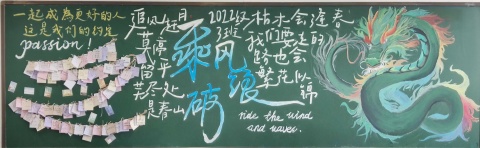 一起成為更好的人
这是我们的约定
passion
追风赶月
莫停留
平芜尽处是春山
乘风破浪
2022级
3班
枯木会逢春
我们要走的
路也会
繁花似锦
ride the wind
and waves.